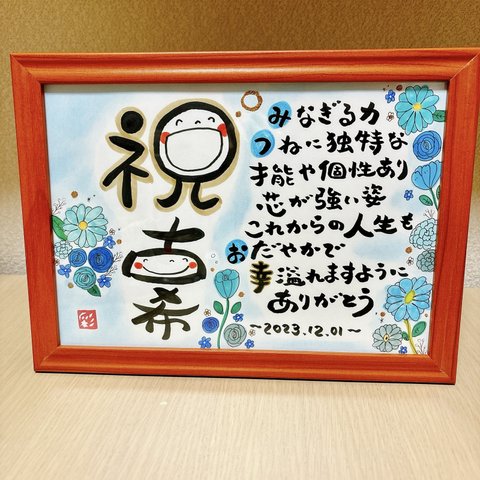 祝
古希
みなぎる力
つねに独特な
才能や個性あり
芯が強い姿
これからの人生も
おだやかで
幸溢れますように
ありがとう
~2023.12.01~